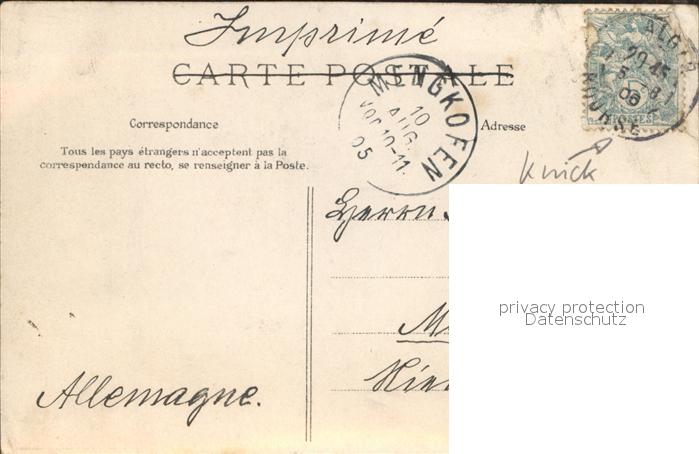 Imprimé
CARTE POSTALE
ALGER
20-45
5 -8
05
BOURSE
POSTES
MENGKOFEN
10
AUG.
VOR.10-11.
05
Correspondance
Adresse
Tous les pays étrangers n'acceptent pas la
correspondance au recto, se renseigner à la Poste.
Knick
Herrn
privacy protection
Datenschutz
Allemagne.